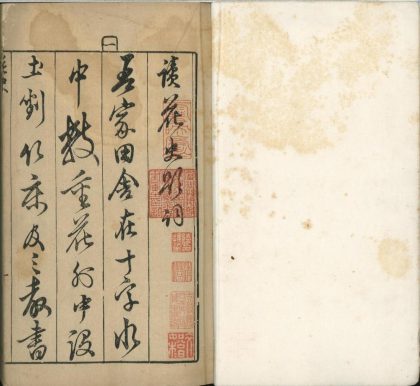 讀花史題詞
吾家田舍在十字水
中數重花外中設
土剉竹床及三教書
一